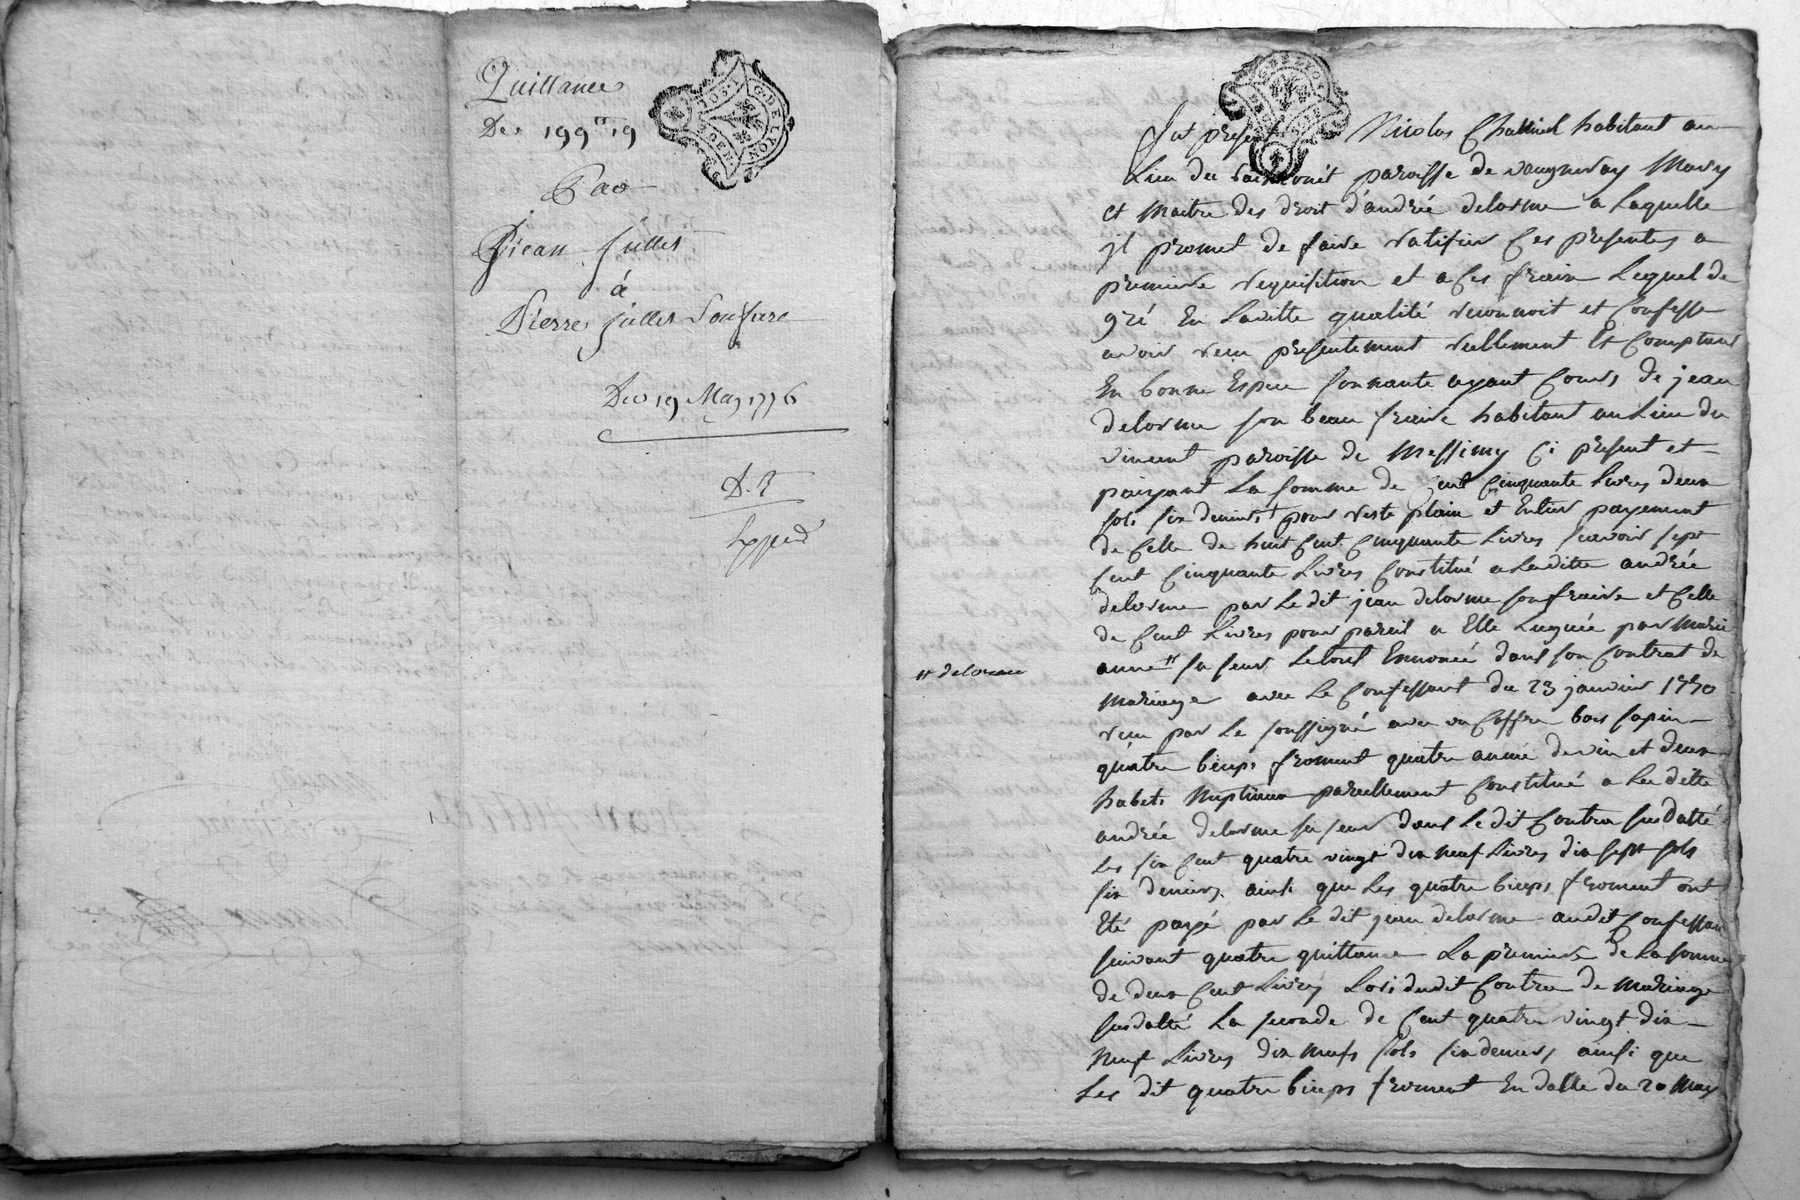 Quittance
De 199lt 19
Par
Jean Jullet
à
Pierre Jullet son frere
Du 19 May 1776
D. R
Exped
GDE LYON
Fut present Nicolas habitant au
Lieu du paroisse de vaugneray Mary
et Maitre des droit d'andrée delorme a Laquelle
jl promet de faire ratifier Ces presentes a
premiere requisition et a Ces frais Lequel de
gré En Laditte qualité reconnoit et Confesse
avoir recu presentement reellement Et Comptant
En bonne Espece sonnante ayant Cours de jean
delorme son beau fraire habitant au Lieu du
vincent paroisse de Messimy Ci present et
paiyant La somme de Cent Cinquante Livres deux
sols six deniers pour reste plain et Entier payement
de Celle de huit Cent Cinquante Livres scavoir sept
Cent Cinquante Livres Constitué a Laditte andrée
delorme par Le dit jean delorme son fraire et Celle
de Cent Livres pour pareil a Elle Leguée par Marie
anne " sa seur Letout Ennoncé dans son Contrat de
" delorme
Mariage avec Le Confessant du 23 janvier 1770
recu par Le soussigné avec un Coffre bois sapin
quatre bicups froment quatre anné de vin et deux
habits Nuptiaux pareillement Constitué a La ditte
andrée delorme sa seur dans Le dit Contra susdatté
Les six Cent quatre vingt dix neuf Livres dix sept sols
six deniers ainsi que Les quatre bicups froment ont
Eté payé par Le dit jean delorme audit Confessant
suivant quatre quittance La premiere de La somme
de deux Cent Livres Lors dudit Contra de Mariage
susdatté La seconde de Cent quatre vingt dix
Neuf Livres dix neufs sols six deniers ainsi que
Les dit quatre bicups froment En datte du 20 May